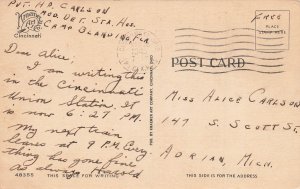 Pvt. H.D. Carlson
Med. Det. Sta. Hos.
Camp Blanding, Fla
Cincinnati
Free
PLACE
STAMP HERE
POST CARD
Dear Alice;
I am writing this
in the Cincinnati
Union Station. It
is now 6:27 P.M.
My next train
leaves at 9 P.M. Every-
thing has gone fine
as always Harold
Miss Alice Carlson
147 S. Scott St.
Adrian, Mich.
48355
THIS SPACE FOR WRITING
THIS SIDE IS FOR THE ADDRESS